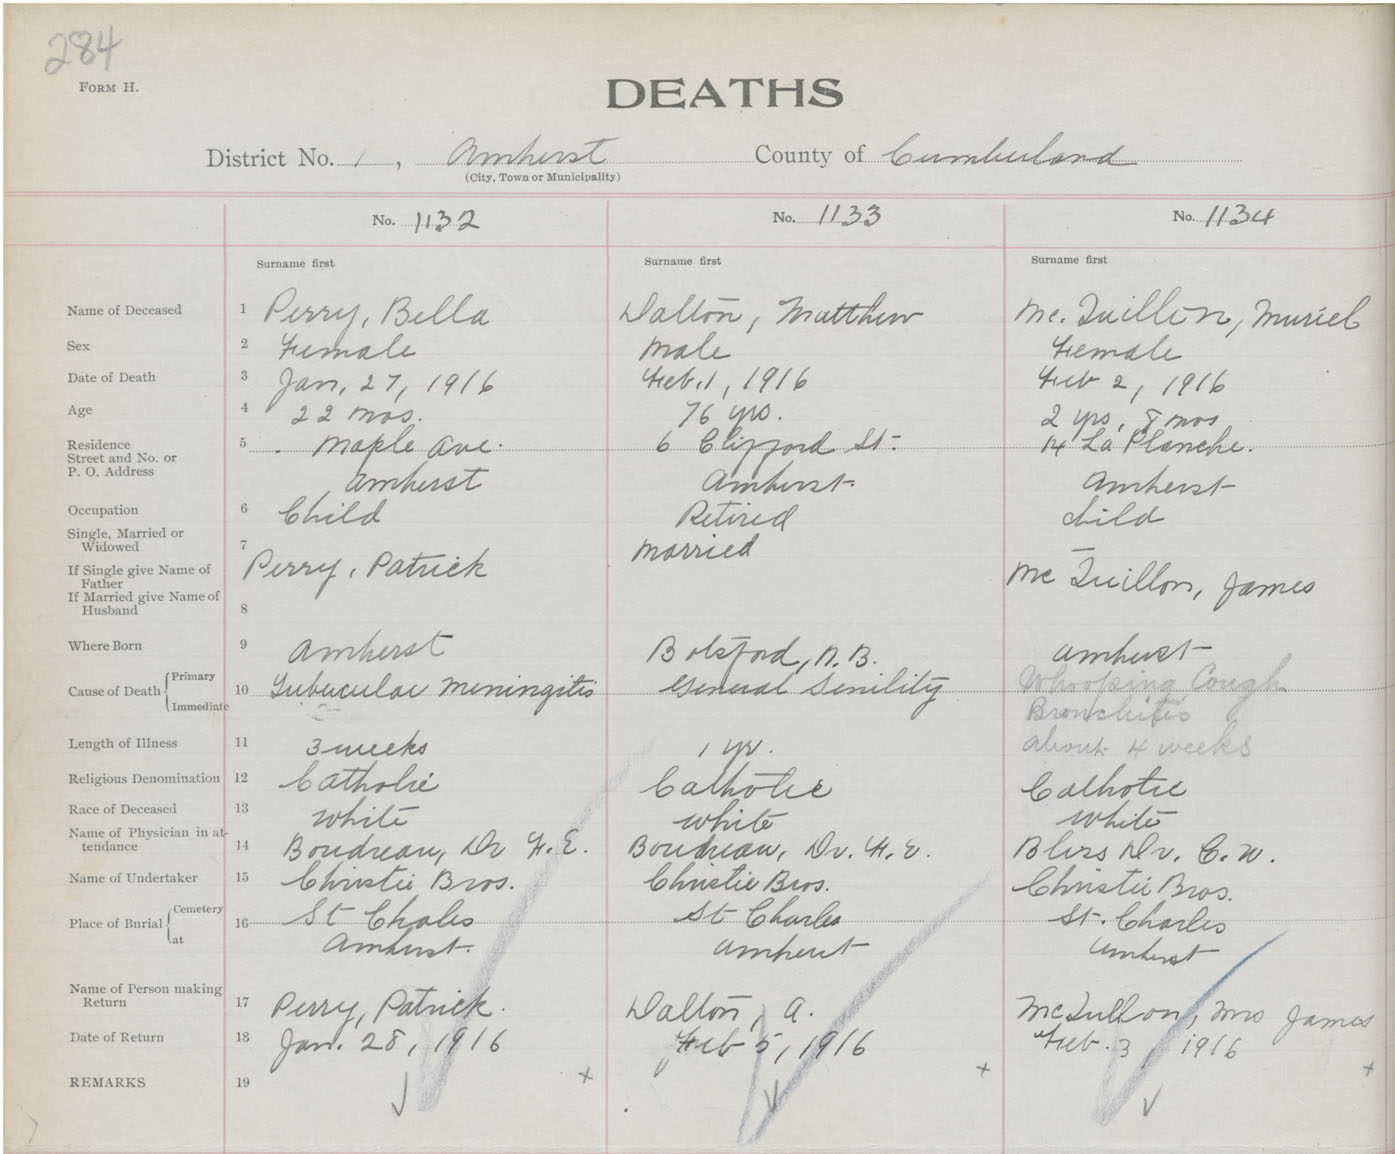 284
Form H.
DEATHS
District No. 1, Amherst County of Cumberland
(City, Town or Municipality)
No. 1132 No. 1133 No. 1134
Surname first Surname first Surname first
Name of Deceased 1 Perry, Bella Dalton, Matthew Mc. Quillen, Muriel
Sex 2 Female Male Female
Date of Death 3 Jan, 27, 1916 Feb. 1, 1916 Feb 2, 1916
Age 4 22 mos. 76 yrs. 2 yrs, 8 mos
Residence 5 Maple Ave. 6 Clifford St. 14 La Planche.
Street and No. or
P. O. Address Amherst Amherst Amherst
Occupation 6 Child Retired child
Single, Married or
Widowed 7 married —
If Single give Name of
Father Perry, Patrick Mc Quillon, James
If Married give Name of
Husband 8
Where Born 9 Amherst Botsford, N.B. Amherst
Cause of Death Primary 10 Tubucular Meningitis General Senility Whooping Cough
Immediate Bronchitis
Length of Illness 11 3 weeks 1 yr. about 4 weeks
Religious Denomination 12 Catholic Catholic Catholic
Race of Deceased 13 White White White
Name of Physician in at-
tendance 14 Boudreau, Dr F. E. Boudreau, Dr. F. E. Bliss Dr. C. W.
Name of Undertaker 15 Christie Bros. Christie Bros. Christie Bros.
Place of Burial Cemetery 16 St Chales St Charles St. Charles
at Amherst. Amherst Amherst
Name of Person making
Return 17 Perry, Patrick. Dalton, A. McQullon, Mrs James
Date of Return 18 Jan. 28, 1916 Feb 5, 1916 Feb. 3, 1916
REMARKS 19 + + +